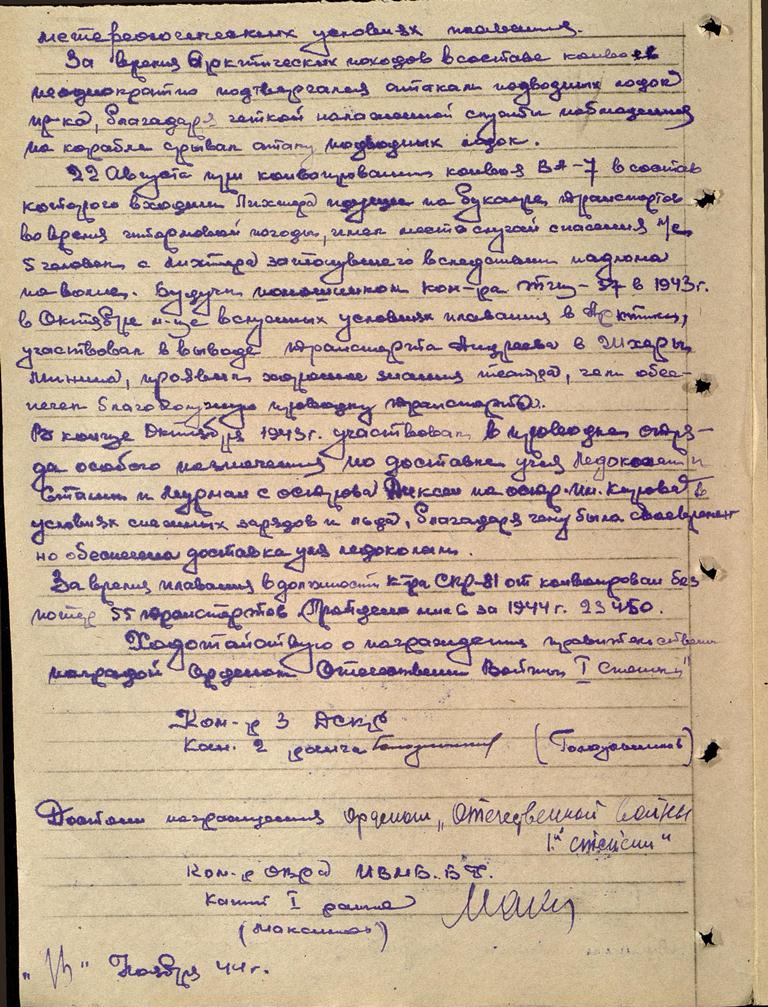 метереологических условиях плавания.
За время Арктических походов в составе конвоев
неоднократно подтвергался атакам подводных лодок
пр-ка, благодаря четкой налаженной службы наблюдения
на корабле срывал атаки подводных лодок.
22 Августа при конвоировании конвоя ВА-7 в состав
которого входили Лихтера идущие на буксире транспортов
во время штормовой погоды, имел место случай спасения
5 человек с лихтера затонувшего вследствии надлома
на волне. Будучи помошником ком-ра ТЩ-37 в 1943г.
в Октябре м-це в сложных условиях плавания в Арктике,
участвовал в выводе транспорта Андреев в Шхеры
Минина, проявил хорошее знания театра, чем обес-
печил благополучную проводку транспорта.
В конце Октября 1943г. участвовал в проводке отря-
да особого назначения по доставке угля ледоколам И
Сталин и Мурман с острова Диксон на остр. Кирова в
условиях снежных зарядов и льда, благодаря чему была своевремен
но обеспечена доставка угля ледоколам.
За время плавания в должности к-ра СКР-81 отконвоировал без
потерь 55 транспортов. Пройдено миль за 1944г. 23450.
Ходотайствую о награждении правительствен
наградой Орденом Отечественн Войны I степени"
Ком-р 3 ДСКР
Кап. 2 ранга (Голодашников)
Достоин награждения Орденом „Отечественной войны
1й степени"
Ком-р ОВРа ИВМБ. БФ.
Капит I ранга
(Максимов)
" " Ноября 44г.